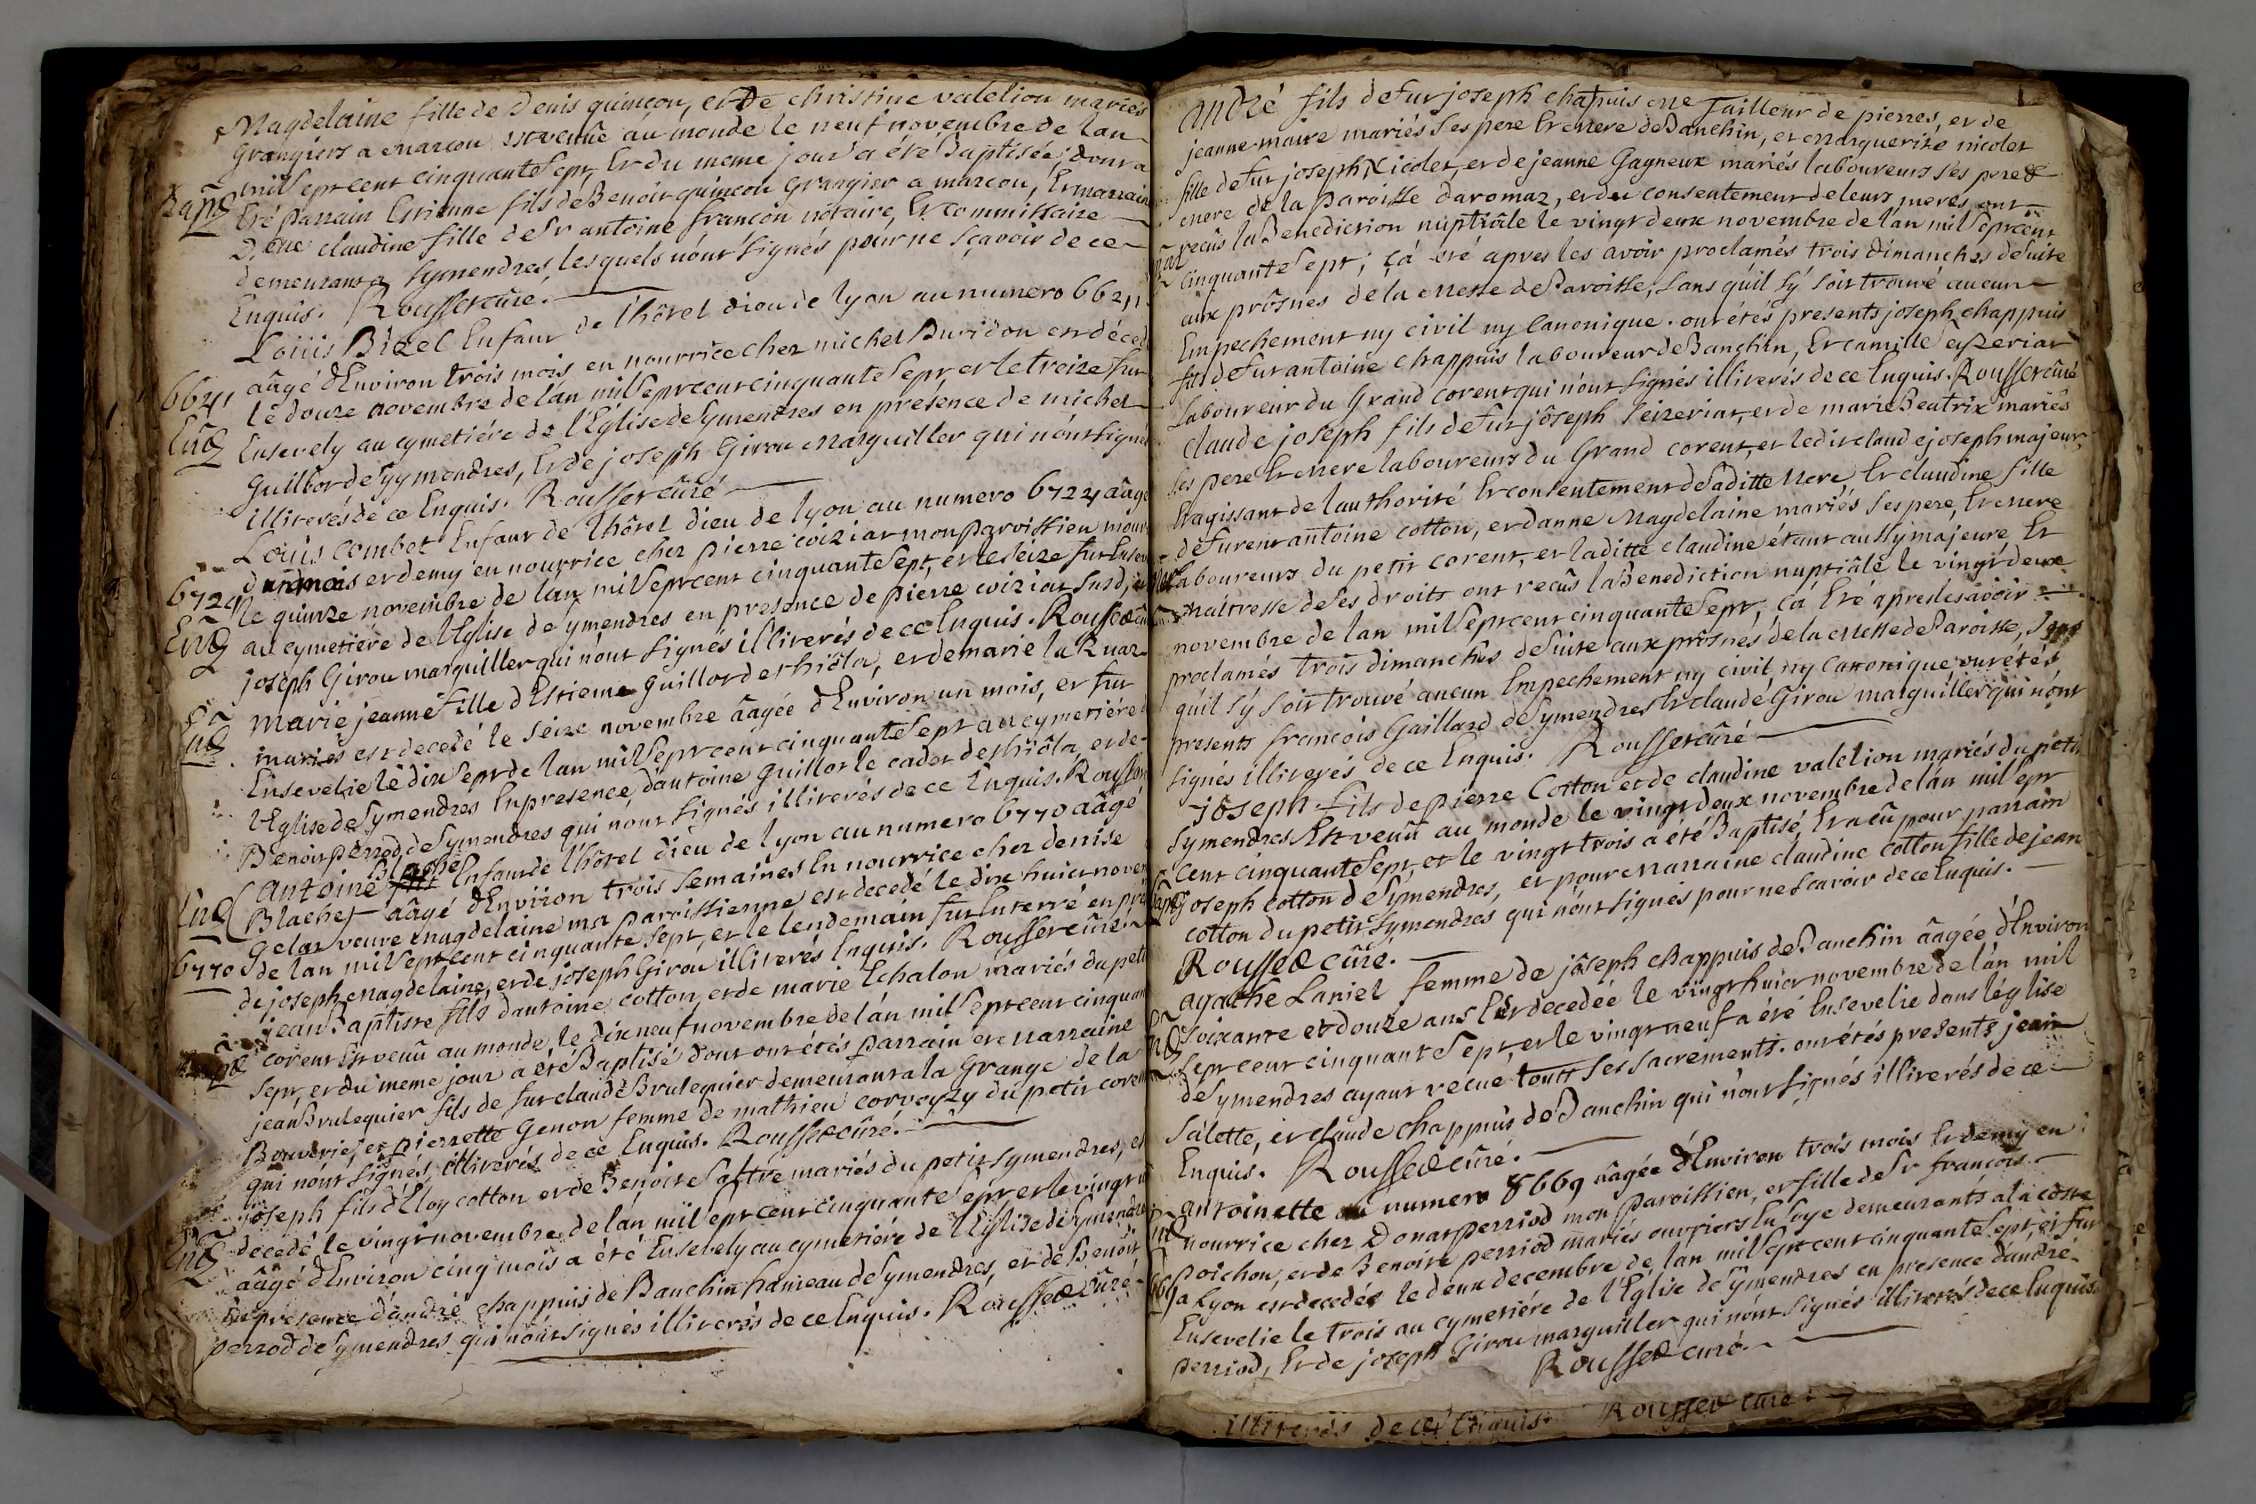 Magdelaine fille de Denis quinçon, et de christine valelion mariés
Grangiers a marcou est venüe au monde le neuf novembre de lan
mil sept cent cinquante sept, Et du meme jour a été Baptisée; dont a
Bapt
Eté parrain Estienne fils de Benoit quinçon Grangier a marcou, Et marraine
Dlle claudine fille de Sr antoine francon notaire, Et commissaire
demeurant a Symendres, lesquels n'ont signés pour ne sçavoir de ce
Enquis. Rousset curé.
Loüis Bizel Enfant de l'hôtel diou de lyon au numero 6641
aâgé d'Environ trois mois en nourrice chez michel Buridon est décedé
6641
le douze novembre de lán mil sept cent cinquante sept et le treize fut
Ent
Ensevely au cymetiére de l'Eglise de Symendres en présence de michel
Guillot de Symendres, Et de joseph Girou Marguiller qui n'ont signés
illiterés de ce Enquis. Rousset curé
Loüis Combet Enfant de l'hôtel dieu de lyon au numero 6724 aâgé
d'un mois et demy en nourrice chez pierre coiziat mon paroissien mourut
6724
le quinze novembre de lán mil sept cent cinquante sept, et le seize fut Ensevely
Ent
au cymetiére de l'Eglise de Symendres en presence de pierre coiziat susd, et
joseph Girou marguiller qui n'ont signés illiterés de ce Enquis. Rousset curé
Ent
marie jeanne fille d'Estienne Guillot de thiôla, et de marie la Ruaz
mariés est decedé le seize novembre aâgée d'Environ un mois, et fut
Ensevelie le dix sept de lan mil sept cent cinquante sept au cymetiére
l'Eglise de Symendres En presence d'antoine Guillot le cadet de thiôla, et de
Benoit perrod de Symendres qui n'ont signés illiterés de ce Enquis. Rousset
Ent
antoine Blachet Enfant de l'hôtel dieu de lyon au numero 6770 aâgé
Blachet aâgé d'Environ trois semaines En nourrice chez denise
Gelas veuve magdelaine ma paroissienne est decedé le dix huict novembre
6770
de lan mil sept cent cinquante sept, et le lendemain fut Enterré en présence
de joseph magdelaine, et de joseph Girou illiterés Enquis. Rousset curé
jean Baptiste fils d'antoine cotton, et de marie Echalon mariés du petit
corent Est venû au monde le dix neuf novembre de lán mil sept cent cinquante
sept, et du meme jour a été Baptisé dont ont étés parrain et marraine
jean Brulequier fils de fut claude Brulequier demeurant a la Grange de la
Bouverie, et pierrette Genon femme de mathieu corvoyzy du petit corent
qui n'ont signés, illiterés de ce Enquis. Rousset curé.
joseph fils d'Eloy cotton et de Benoite Saltre mariés du petit Symendres, est
Ent
decedé le vingt novembre de lán mil sept cent cinquante sept et le vingt un
aâgé d'Environ cinq mois a été Ensevely au cymetiére de l'Eglise de Symendres
En presence d'andré chappuis de Banchin hameau de Symendres, et de Benoit
perrod de Symendres qui n'ont signés illiterés de ce Enquis. Rousset curé
andré fils de fut joseph chapuis Me Tailleur de pierres, et de
jeanne maire mariés ses pere Et mere de Banchin, et Marguerite nicolet
fille de fut joseph Nicolet, et de jeanne Gagneux mariés laboureurs ses pere &
mere de la Paroisse daromaz, et du consentement de leurs meres ont
recûs la Benediction nuptiâle le vingt deux novembre de lan mil sept cent
Mar
cinquante sept; çá été apres les avoir proclamés trois dimanches de suite
aux prôsnes de la Messe de Paroisse, sans qu'il s'y soit trouvé aucun
Empechement ny civil ny Canonique. ont étés presents joseph chappuis
fils de fut antoine chappuis laboureur de Banchin, Et camille eyzeriat
Laboureur du Grand corent qui n'ont signés illiterés de ce Enquis. Rousset curé
claude joseph fils de fut joseph Seizeriat, et de marie Beatrix mariés
ses pere Et Mere laboureurs du Grand corent, et ledit claude joseph majeur,
Et agissant de lauthorité Et consentement de sa ditte Mere Et claudine fille
de furent antoine cotton, et danne Magdelaine mariés ses pere, Et mere
laboureurs du petit corent, et laditte claudine étant aussy majeure, Et
Maitresse de ses droits ont recûs la Benediction nuptiâle le vingt deux
novembre de lan mil sept cent cinquante sept, ça Eté apres les avoir
proclamés trois dimanches de suite aux prôsnes de la Messe de Paroisse, sans
qu'il s'y soit trouvé aucun Empechement ny civil, ny Canonique ont étés
presents françois Gaillard de Symendres Et claude Girou marguiller qui n'ont
signés illiterés de ce Enquis. Rousset curé
jôseph fils de pierre Cotton et de claudine valelion mariés du petit
Symendres Est venû au monde le vingt deux novembre de lán mil sept
cent cinquante sept, et le vingt trois a été Baptisé, Et a eû pour parrain
Bapt
joseph cotton de Symendres, et pour Marraine claudine cotton fille de jean
cotton du petit Symendres qui n'ont signés pour ne Scavoir de ce Enquis.
Rousset curé.
agathe Laniel femme de jôseph chappuis de Banchin aâgée d'Environ
soixante et douze ans Est decedée le vingt huict novembre de lán mil
sept cent cinquante sept, et le vingt neuf a été Ensevelie dans l'église
de Symendres ayant recue touts ses sacrements. ont étés presents jean
Salette, et claude chappuis de Banchin qui n'ont signés illiterés de ce
Enquis. Rousset curé.
antoinette au numero 8669 aâgée d'Environ trois mois Et demy en
nourrice chez Donat perriod mon paroissien, et fille de Sr françois
poichon, et de Benoite perriod mariés ouvriers En soye demeurants a la coste
a Lyon est decedée le deux decembre de lan mil sept cent cinquante sept, et fut
Ensevelie le trois au cymetiére de l'Eglise de Symendres en presence d'andré
perriod, Et de joseph Girou marguiller qui n'ont signés illiterés de ce Enquis.
Rousset curé.
illiterés de ce Enquis. Rousset curé.